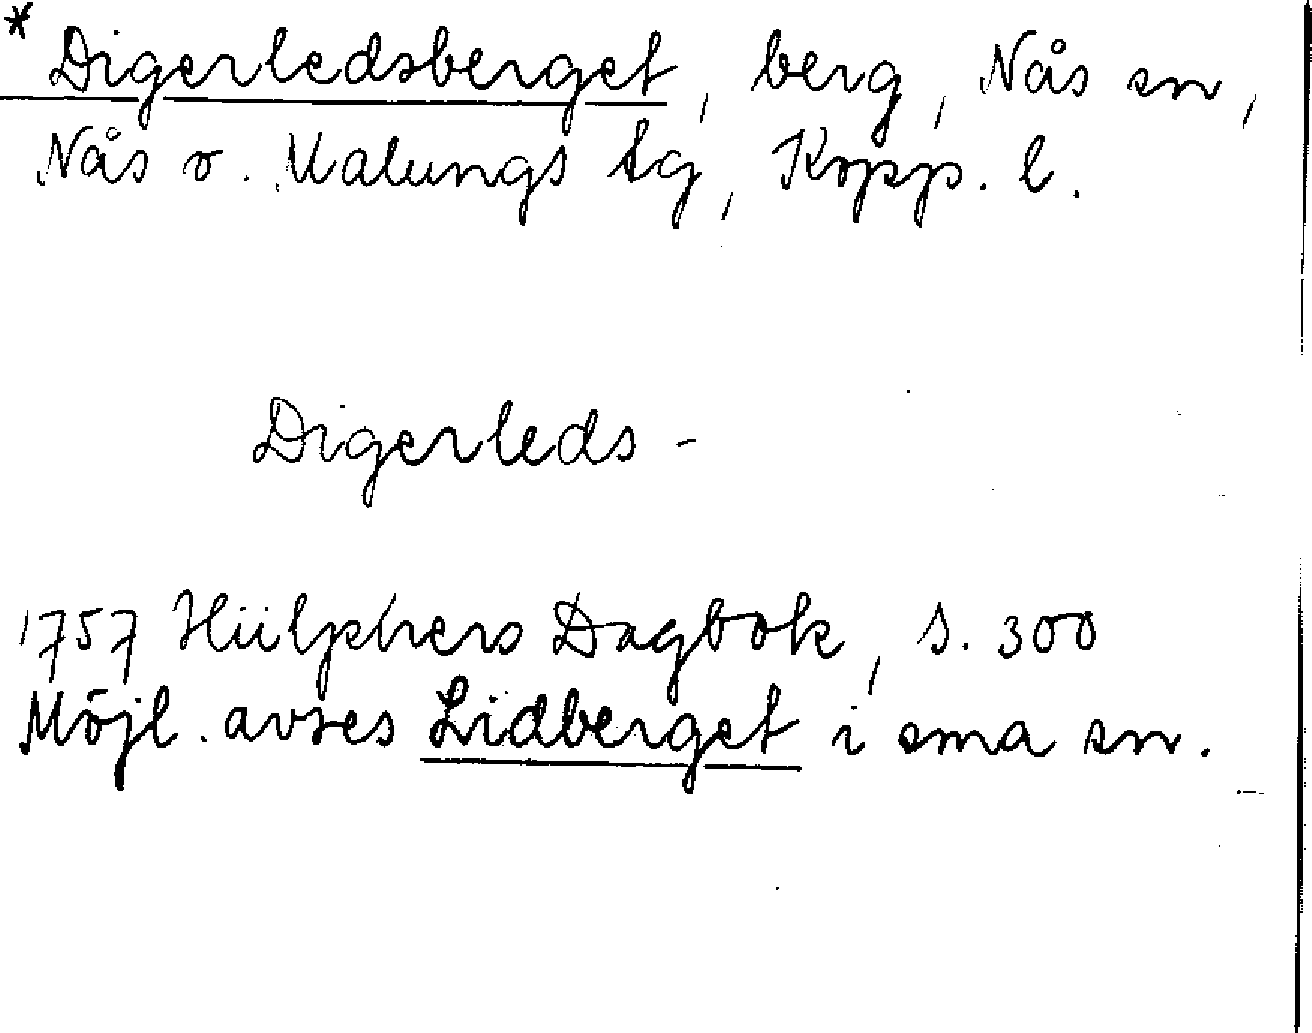 * Digerledsberget, berg, Nås sn,
Nås o. Malungs tg, Kopp. l.
Digerleds-
1757 Hülphers Dagbok, s. 300
Möjl. avses Lidberget i sma sn.